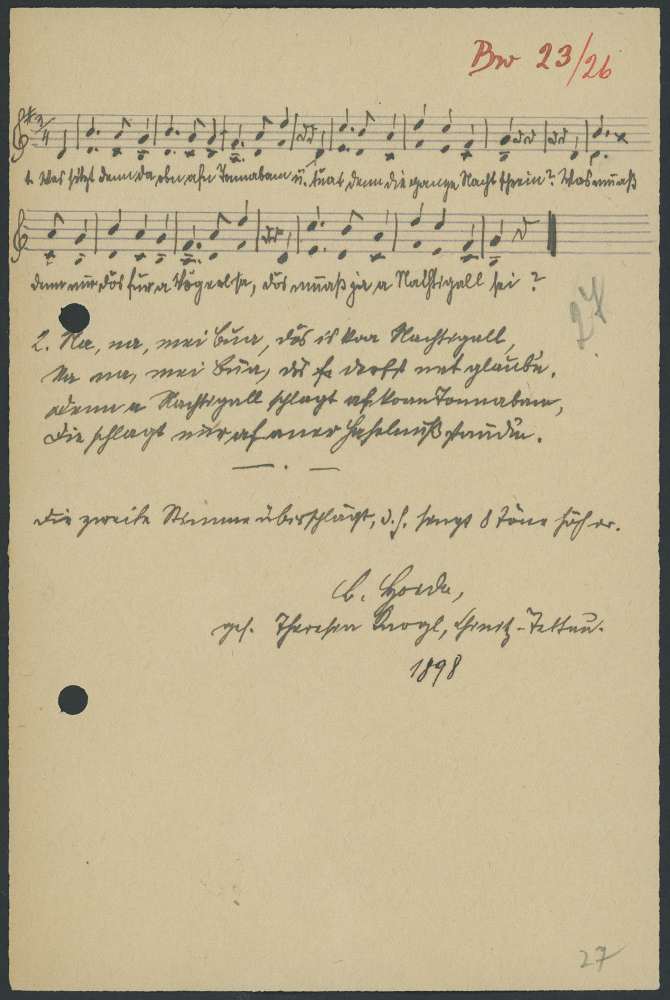 Bw 23/26
3/4
1. Was sitzt denn da obn afn Tonnabam u. tuat denn die ganze Nacht schrein? Was muaß
denn nur dös für a Vögerl sa, dös muaß ja a Nachtigall sei?
27
2. Na, na, mei Bua, dös is koa Nachtigall,
Na na, mei Bua, dös derfst net glaube,
Denn a Nachtigall schlagt af koan Tonnabam,
Die schlagt nur af aner Haselnußstaudn.
Die zweite Stimme überschlägt, d. h. singt 8 Töne höher.
ges. Theresea
1898
27